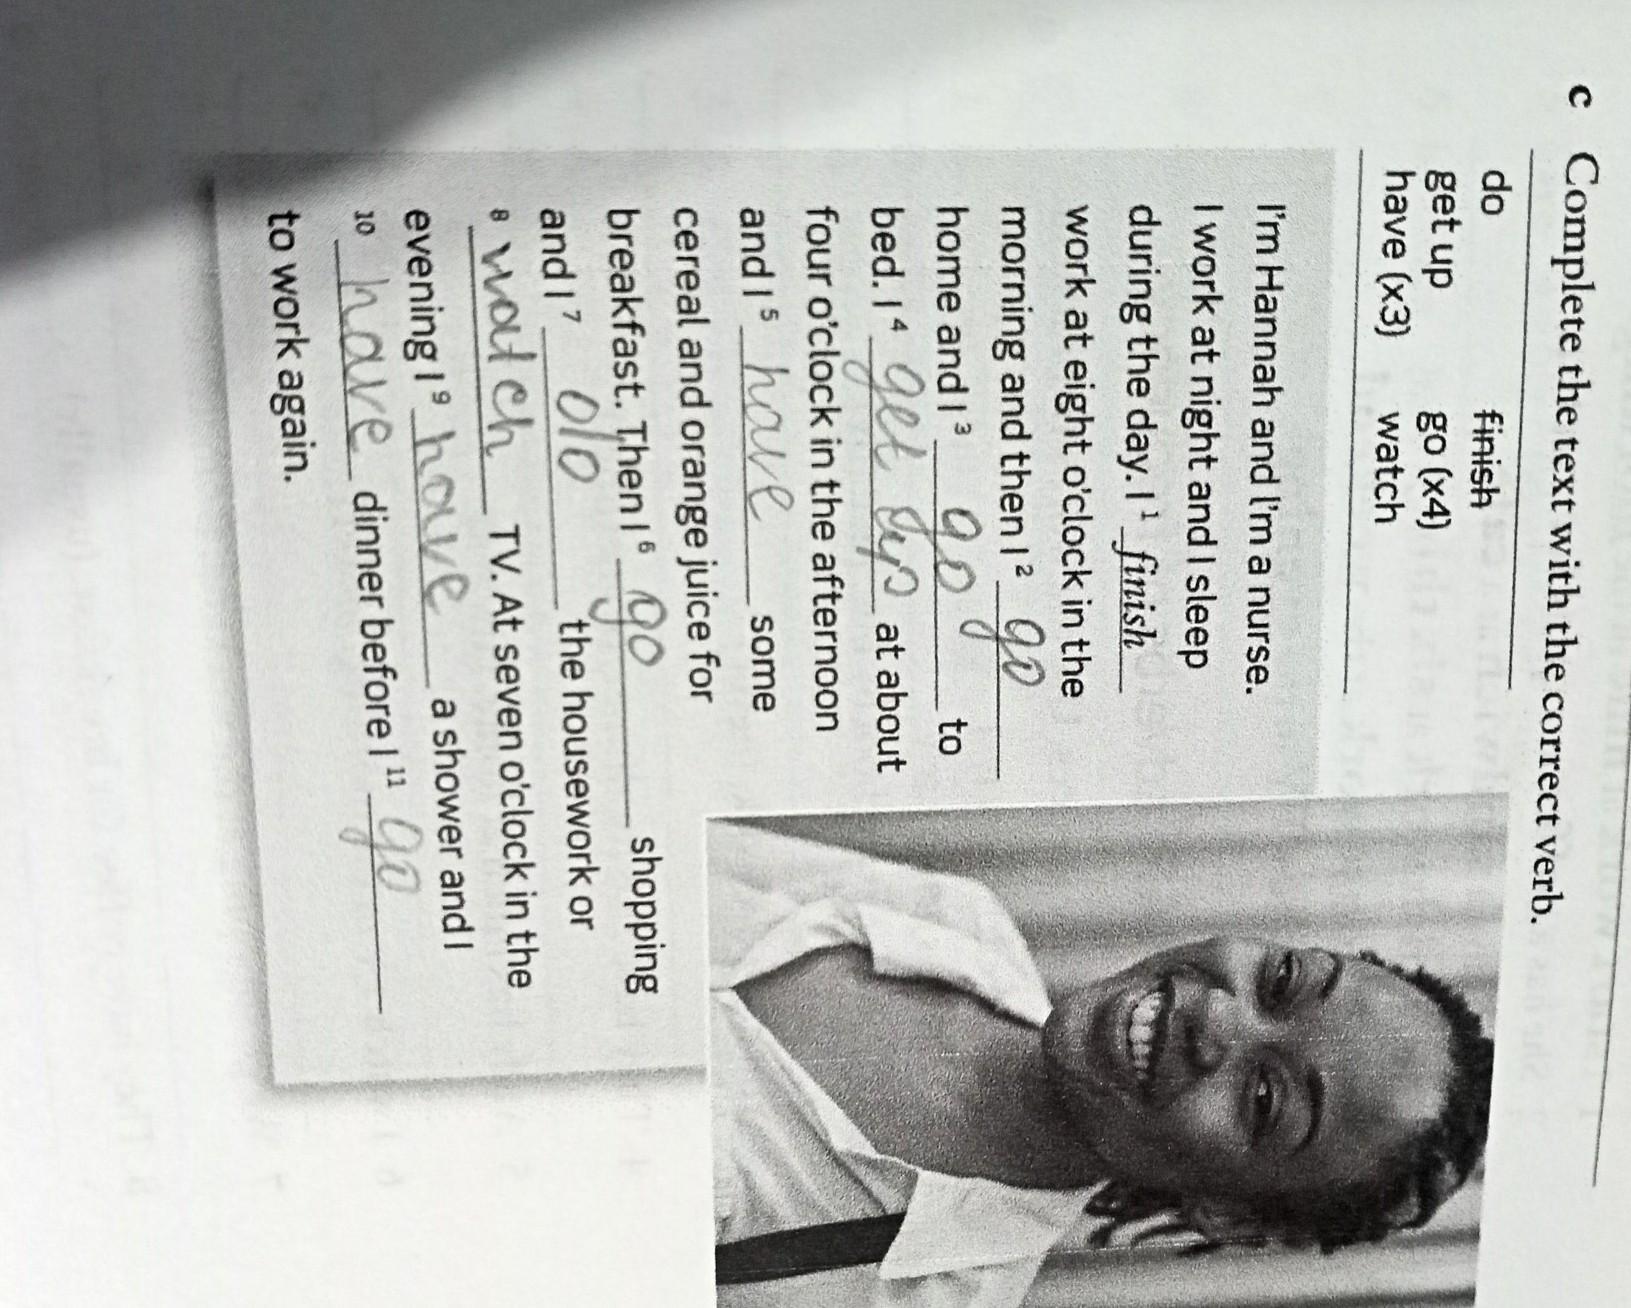 c Complete the text with the correct verb.
do finish
get up go (x4)
have (x3) watch
I'm Hannah and I'm a nurse.
I work at night and I sleep
during the day. I ¹ finish
work at eight o'clock in the
morning and then I ² go
home and I ³ go to
bed. I ⁴ get up at about
four o'clock in the afternoon
and I ⁵ have some
cereal and orange juice for
breakfast. Then I ⁶ go shopping
and I ⁷ do the housework or
⁸ watch TV. At seven o'clock in the
evening I ⁹ have a shower and I
¹⁰ have dinner before I ¹¹ go
to work again.